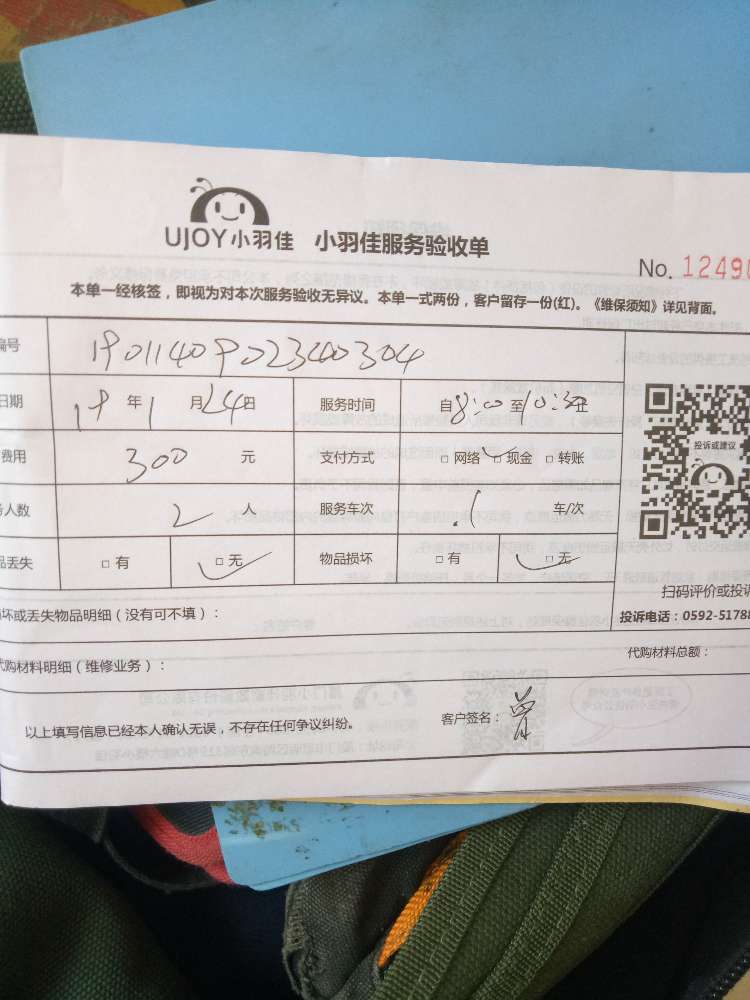 UJOY小羽佳 小羽佳服务验收单
No. 12490
本单一经核签，即视为对本次服务验收无异议。本单一式两份，客户留存一份(红)。《维保须知》详见背面。
编号 19011409023400304
日期 19年1月24日 服务时间 自8:00至10:30止
费用 300 元 支付方式 □网络 □现金 □转账
务人数 2 人 服务车次 1 车/次
投诉或建议
品丢失 □有 □无 物品损坏 □有 □无
扫码评价或投诉
损坏或丢失物品明细（没有可不填）：
投诉电话：0592-51788
代购材料明细（维修业务）：
代购材料总额：
以上填写信息已经本人确认无误，不存在任何争议纠纷。
客户签名：曾